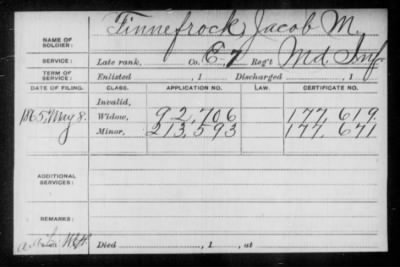 NAME OF SOLDIER: Finnefrock, Jacob M.
SERVICE: Late rank, Co. E. 7 Reg't Md. Inf.
TERM OF SERVICE: Enlisted , 1 Discharged , 1
DATE OF FILING. CLASS. APPLICATION NO. LAW. CERTIFICATE NO.
Invalid,
1865, May 8. Widow, 92,706 177,619
Minor, 213,593 177,671
ADDITIONAL SERVICES:
REMARKS:
Died , 1 , at